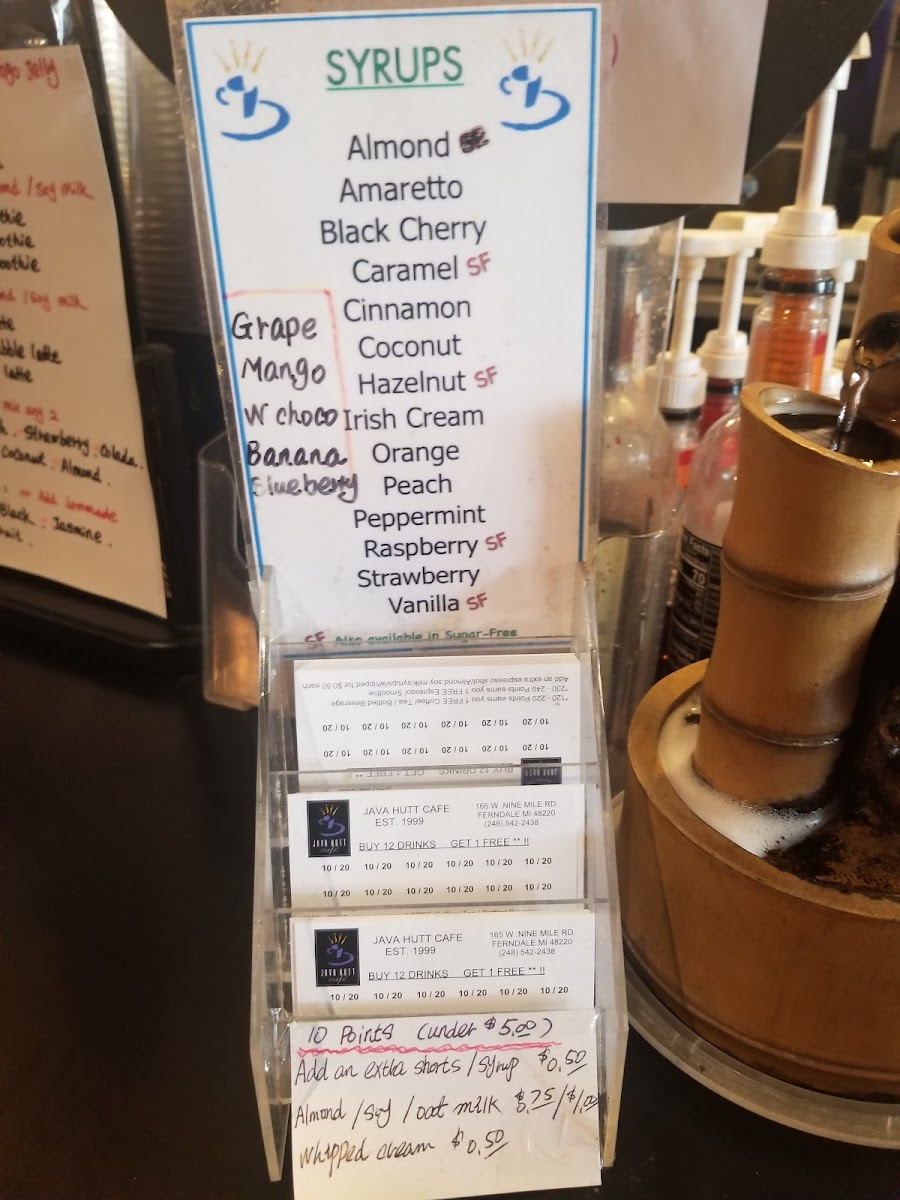 Jelly
/ Soy milk
thie
oothie
oothie
/ Soy milk
bble latte
latte
mix any 2
Strawberry . Colada .
Coconut . Almond .
Add lemonade
Black . Jasmine .
SYRUPS
Almond
Amaretto
Black Cherry
Caramel SF
Cinnamon
Coconut
Hazelnut SF
Irish Cream
Orange
Peach
Peppermint
Raspberry SF
Strawberry
Vanilla SF
SF Also available in Sugar-Free
Grape
Mango
W choco
Banana
Blueberry
BUY 12 DRINKS GET 1 FREE **
10 / 20 10 / 20 10 / 20 10 / 20 10 / 20 10 / 20
10 / 20 10 / 20 10 / 20 10 / 20 10 / 20 10 / 20
*120 - 220 Points earns you 1 FREE Coffee/ Tea / Bottled Beverage
*230 - 240 Points earns you 1 FREE Espresso/ Smoothie
Add an extra espresso shot/Almond soy milk/syrups/whipped for $0.50 each
JAVA HUTT
café
JAVA HUTT CAFE
EST. 1999
165 W .NINE MILE RD.
FERNDALE.MI 48220
(248) 542-2438
BUY 12 DRINKS GET 1 FREE ** !!
10 / 20 10 / 20 10 / 20 10 / 20 10 / 20 10 / 20
10 / 20 10 / 20 10 / 20 10 / 20 10 / 20 10 / 20
JAVA HUTT
café
JAVA HUTT CAFE
EST. 1999
165 W .NINE MILE RD.
FERNDALE.MI 48220
(248) 542-2438
BUY 12 DRINKS GET 1 FREE ** !!
10 / 20 10 / 20 10 / 20 10 / 20 10 / 20 10 / 20
10 Points (under $5.00)
Add an extra shorts / syrup $0.50
Almond / Soy / oat milk $0.75 / $1.00
whipped cream $0.50
70